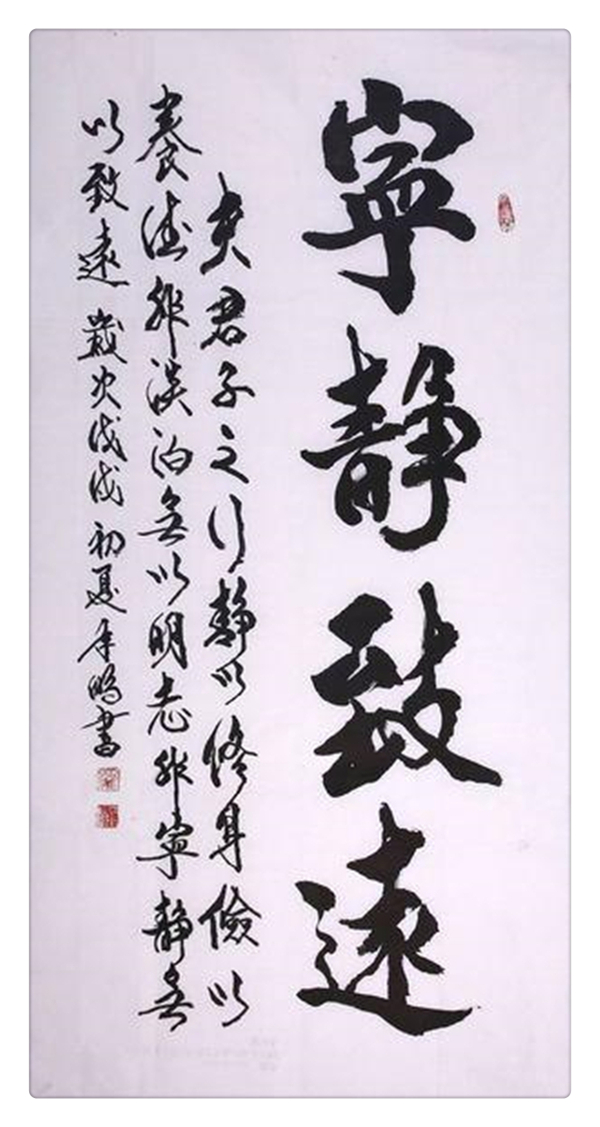 寧静致遠
夫君子之行静以修身儉以
養德非淡泊無以明志非寧静無
以致遠 歲次戊戌初夏 鵬書